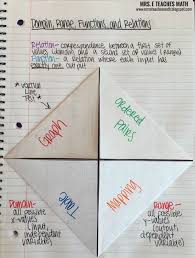 MRS. E TEACHES MATH
Domain, Range, Functions, and Relations
Relation - correspondence between a first set of
values (domain) and a second set of values (range)
Function - a relation where each input has
exactly one output
* Vertical
Line
Test
Graph
Ordered
Pairs
Table
Mapping
Domain-
all possible
x-values
(input,
independent
variable)
Range-
all possible
y-values
(output,
dependent
variable)